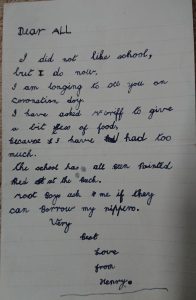 Dear ALL
I did not like school,
but I do now.
I am longing to see you on
coronation day.
I have asked to give
a bit less of food,
because I have had too
much.
The school has all been painted
Red at the back.
most Boys ask me if they
can borrow my nippers.
Very
best
love
from
Henry.